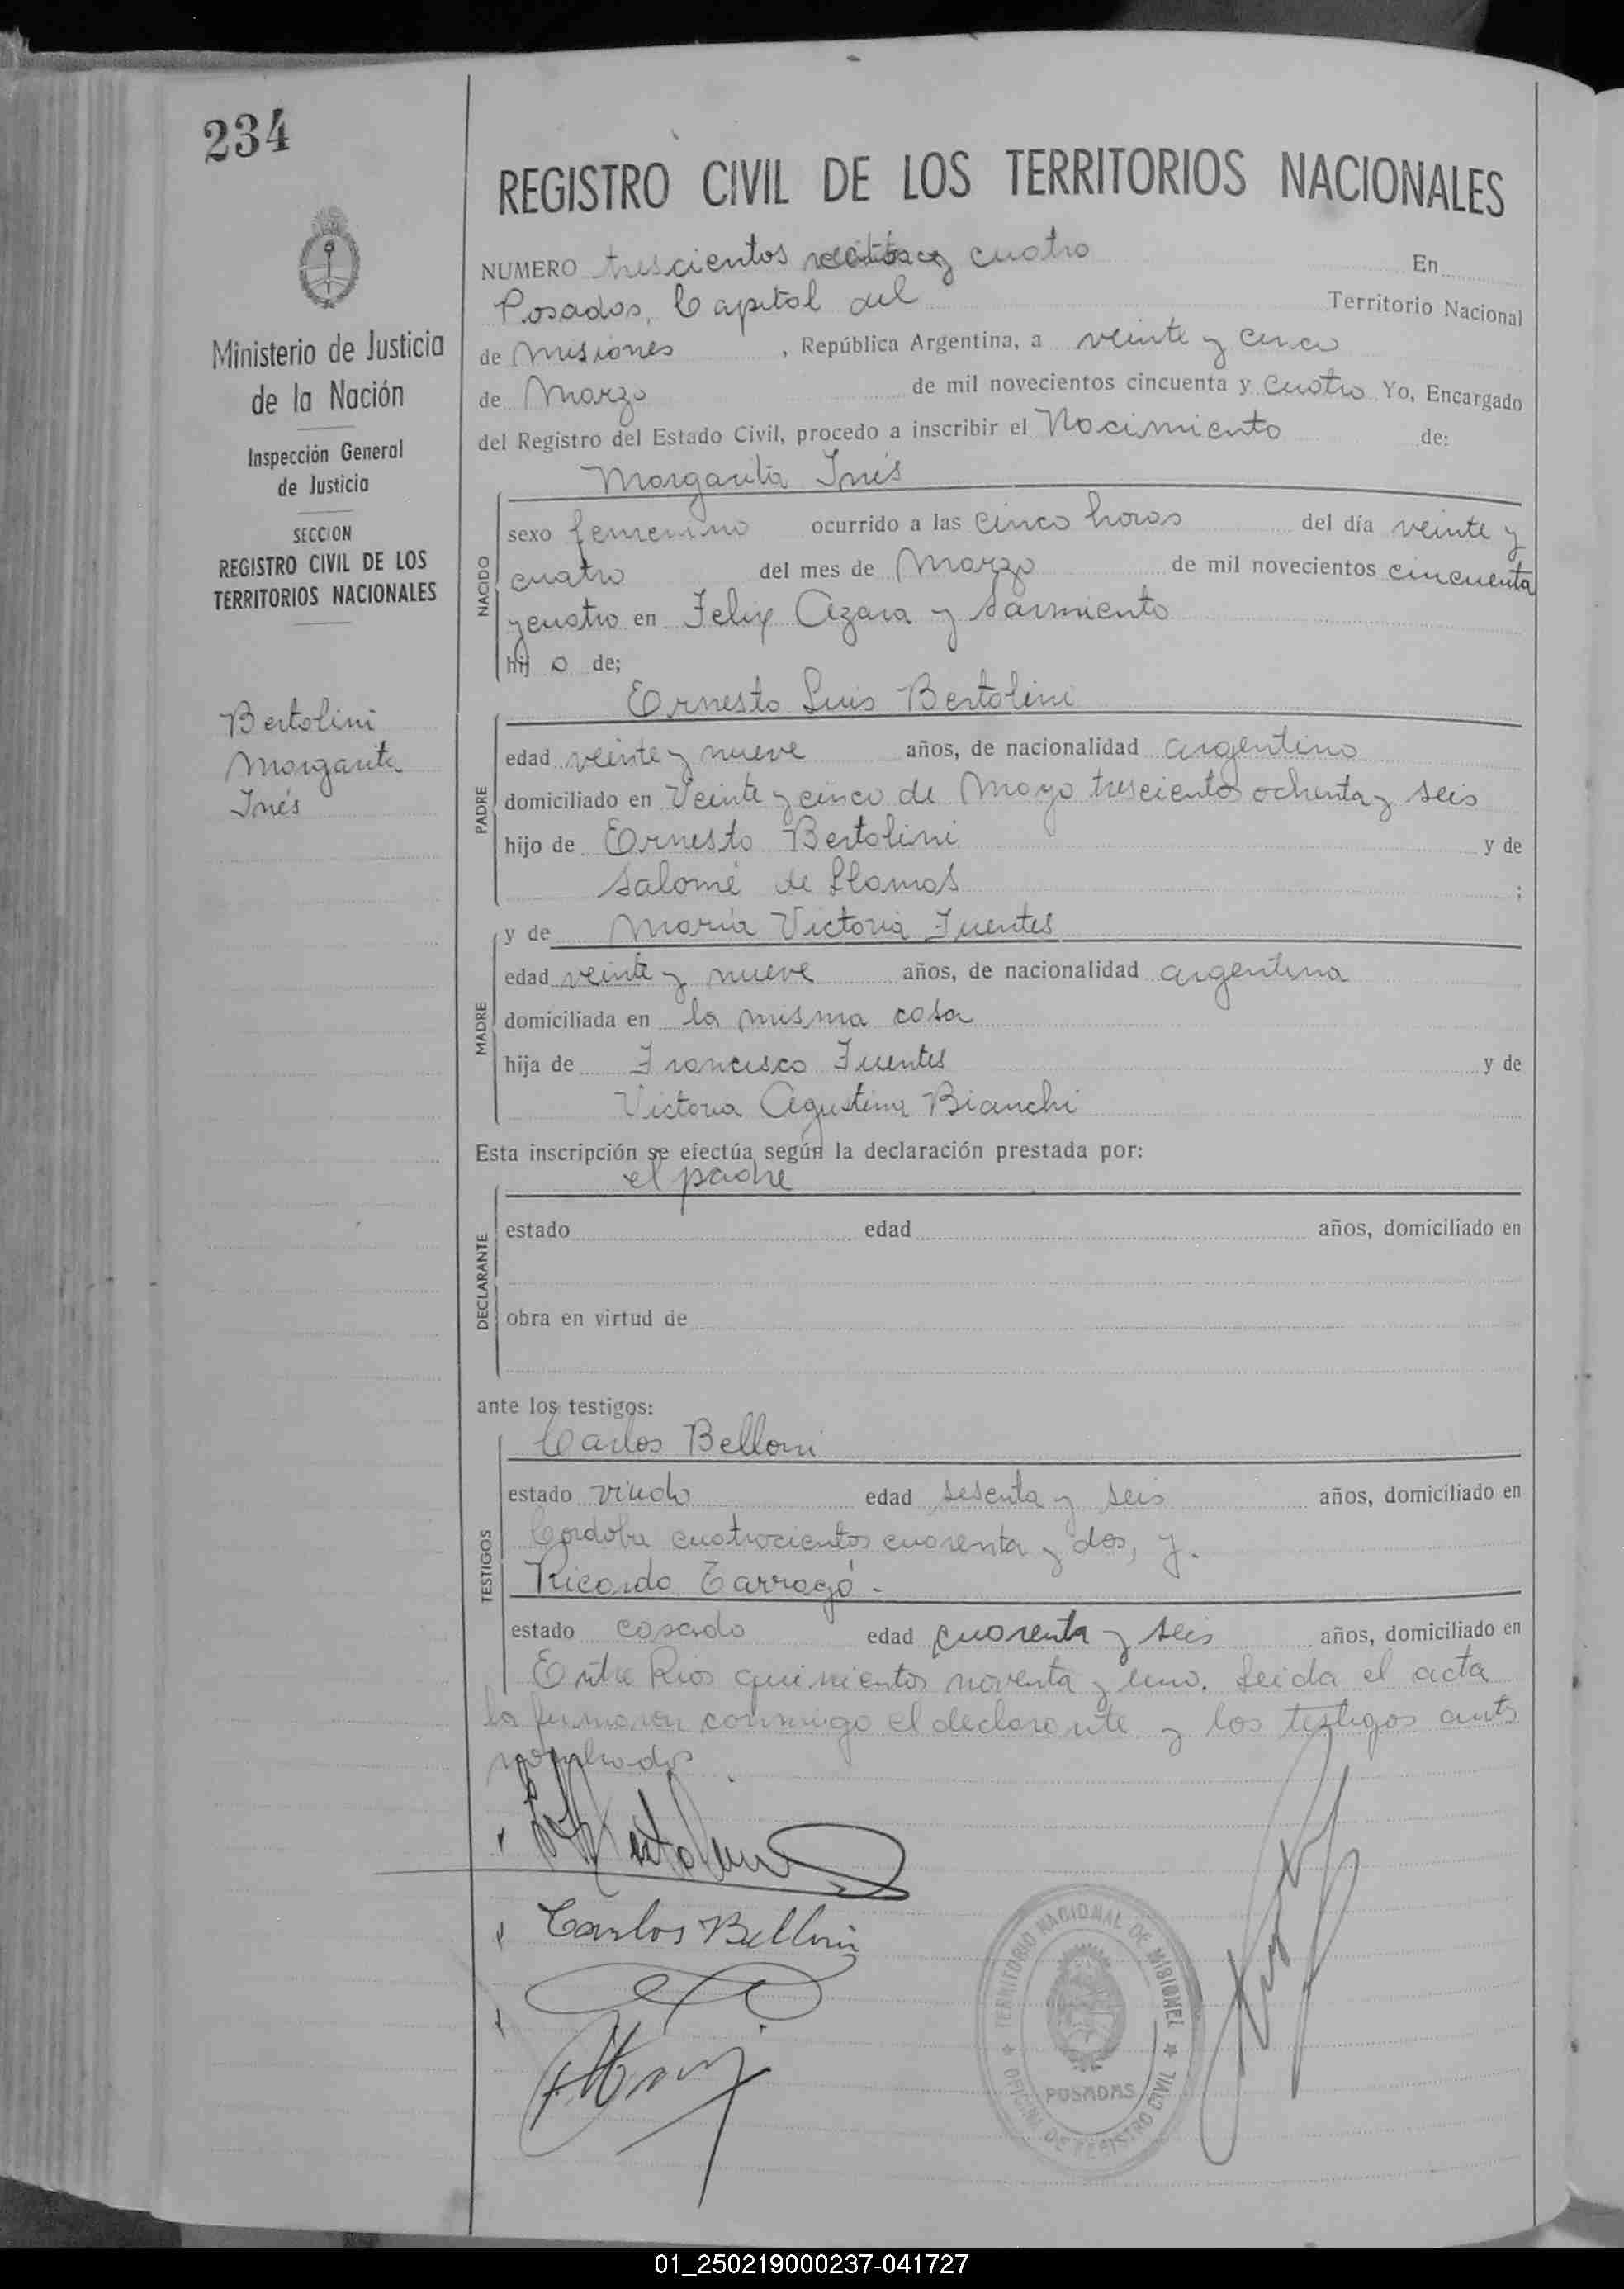 234
REGISTRO CIVIL DE LOS TERRITORIOS NACIONALES
NUMERO trescientos y cuatro En
Posadas, Capital del Territorio Nacional
de Misiones, República Argentina, a veinte y cinco
de Marzo de mil novecientos cincuenta y cuatro Yo, Encargado
del Registro del Estado Civil, procedo a inscribir el Nacimiento de:
Margarita Inés
Ministerio de Justicia
de la Nación
Inspección General
de Justicia
SECCION
REGISTRO CIVIL DE LOS
TERRITORIOS NACIONALES
Bertolini
Margarita
Inés
NACIDO
sexo femenino ocurrido a las cinco horas del día veinte y
cuatro del mes de Marzo de mil novecientos cincuenta
y cuatro en Felix Azara y Sarmiento
hij a de;
Ernesto Luis Bertolini
PADRE
edad veinte y nueve años, de nacionalidad argentino
domiciliado en Veinte y cinco de Mayo trescientos ochenta y seis
hijo de Ernesto Bertolini y de
Salomé de Llamas ;
y de María Victoria Fuentes
MADRE
edad veinte y nueve años, de nacionalidad argentina
domiciliada en la misma casa
hija de Francisco Fuentes y de
Victoria Agustina Bianchi
Esta inscripción se efectúa según la declaración prestada por:
el padre
DECLARANTE
estado edad años, domiciliado en
obra en virtud de
ante los testigos:
Carlos Belloni
TESTIGOS
estado viudo edad sesenta y seis años, domiciliado en
Cordoba cuatrocientos cuarenta y dos, y.
Ricardo Tarragó.-
estado casado edad cuarenta y seis años, domiciliado en
Entre Rios quinientos noventa y uno. Leida el acta
la firmaron conmigo el declarante y los testigos antes
nombrados.
Carlos Belloni
TERRITORIO NACIONAL DE MISIONES
POSADAS
OFICINA DE REGISTRO CIVIL
01_250219000237-041727